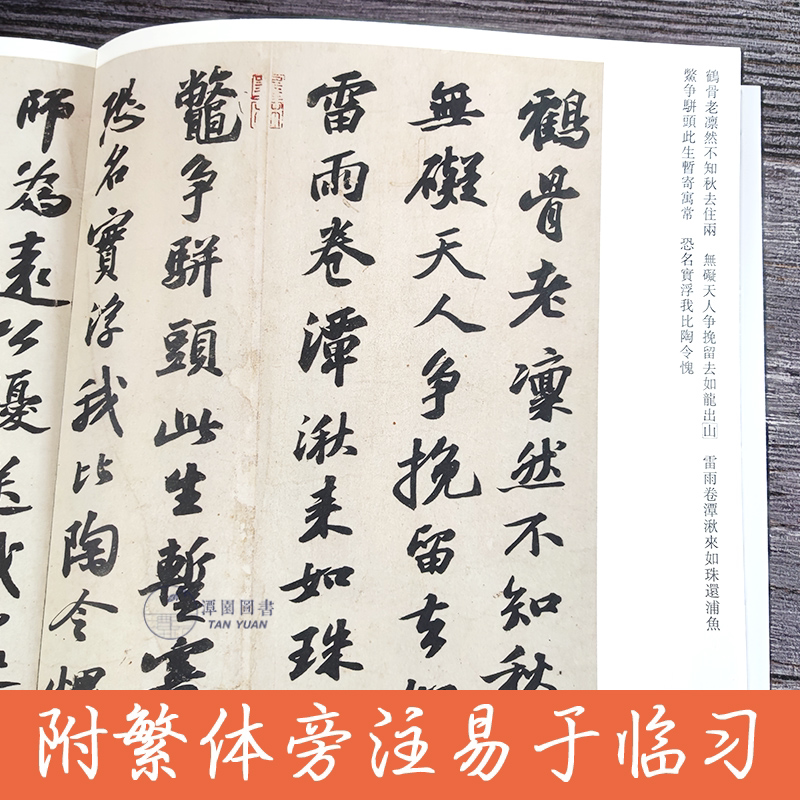 鶴骨老凛然不知秋去住兩　無礙天人争挽留去如龍出山　雷雨卷潭湫來如珠還浦魚
鱉争駢頭此生暫寄寓常　恐名實浮我比陶令愧
鶴骨老凛然不知秋
無礙天人争挽留去
雷雨卷潭湫来如珠
鱉争駢頭此生暫寄
恐名實浮我比陶令愧
師為遠公憂送我
潭園圖書
TAN YUAN
附繁体旁注易于临习